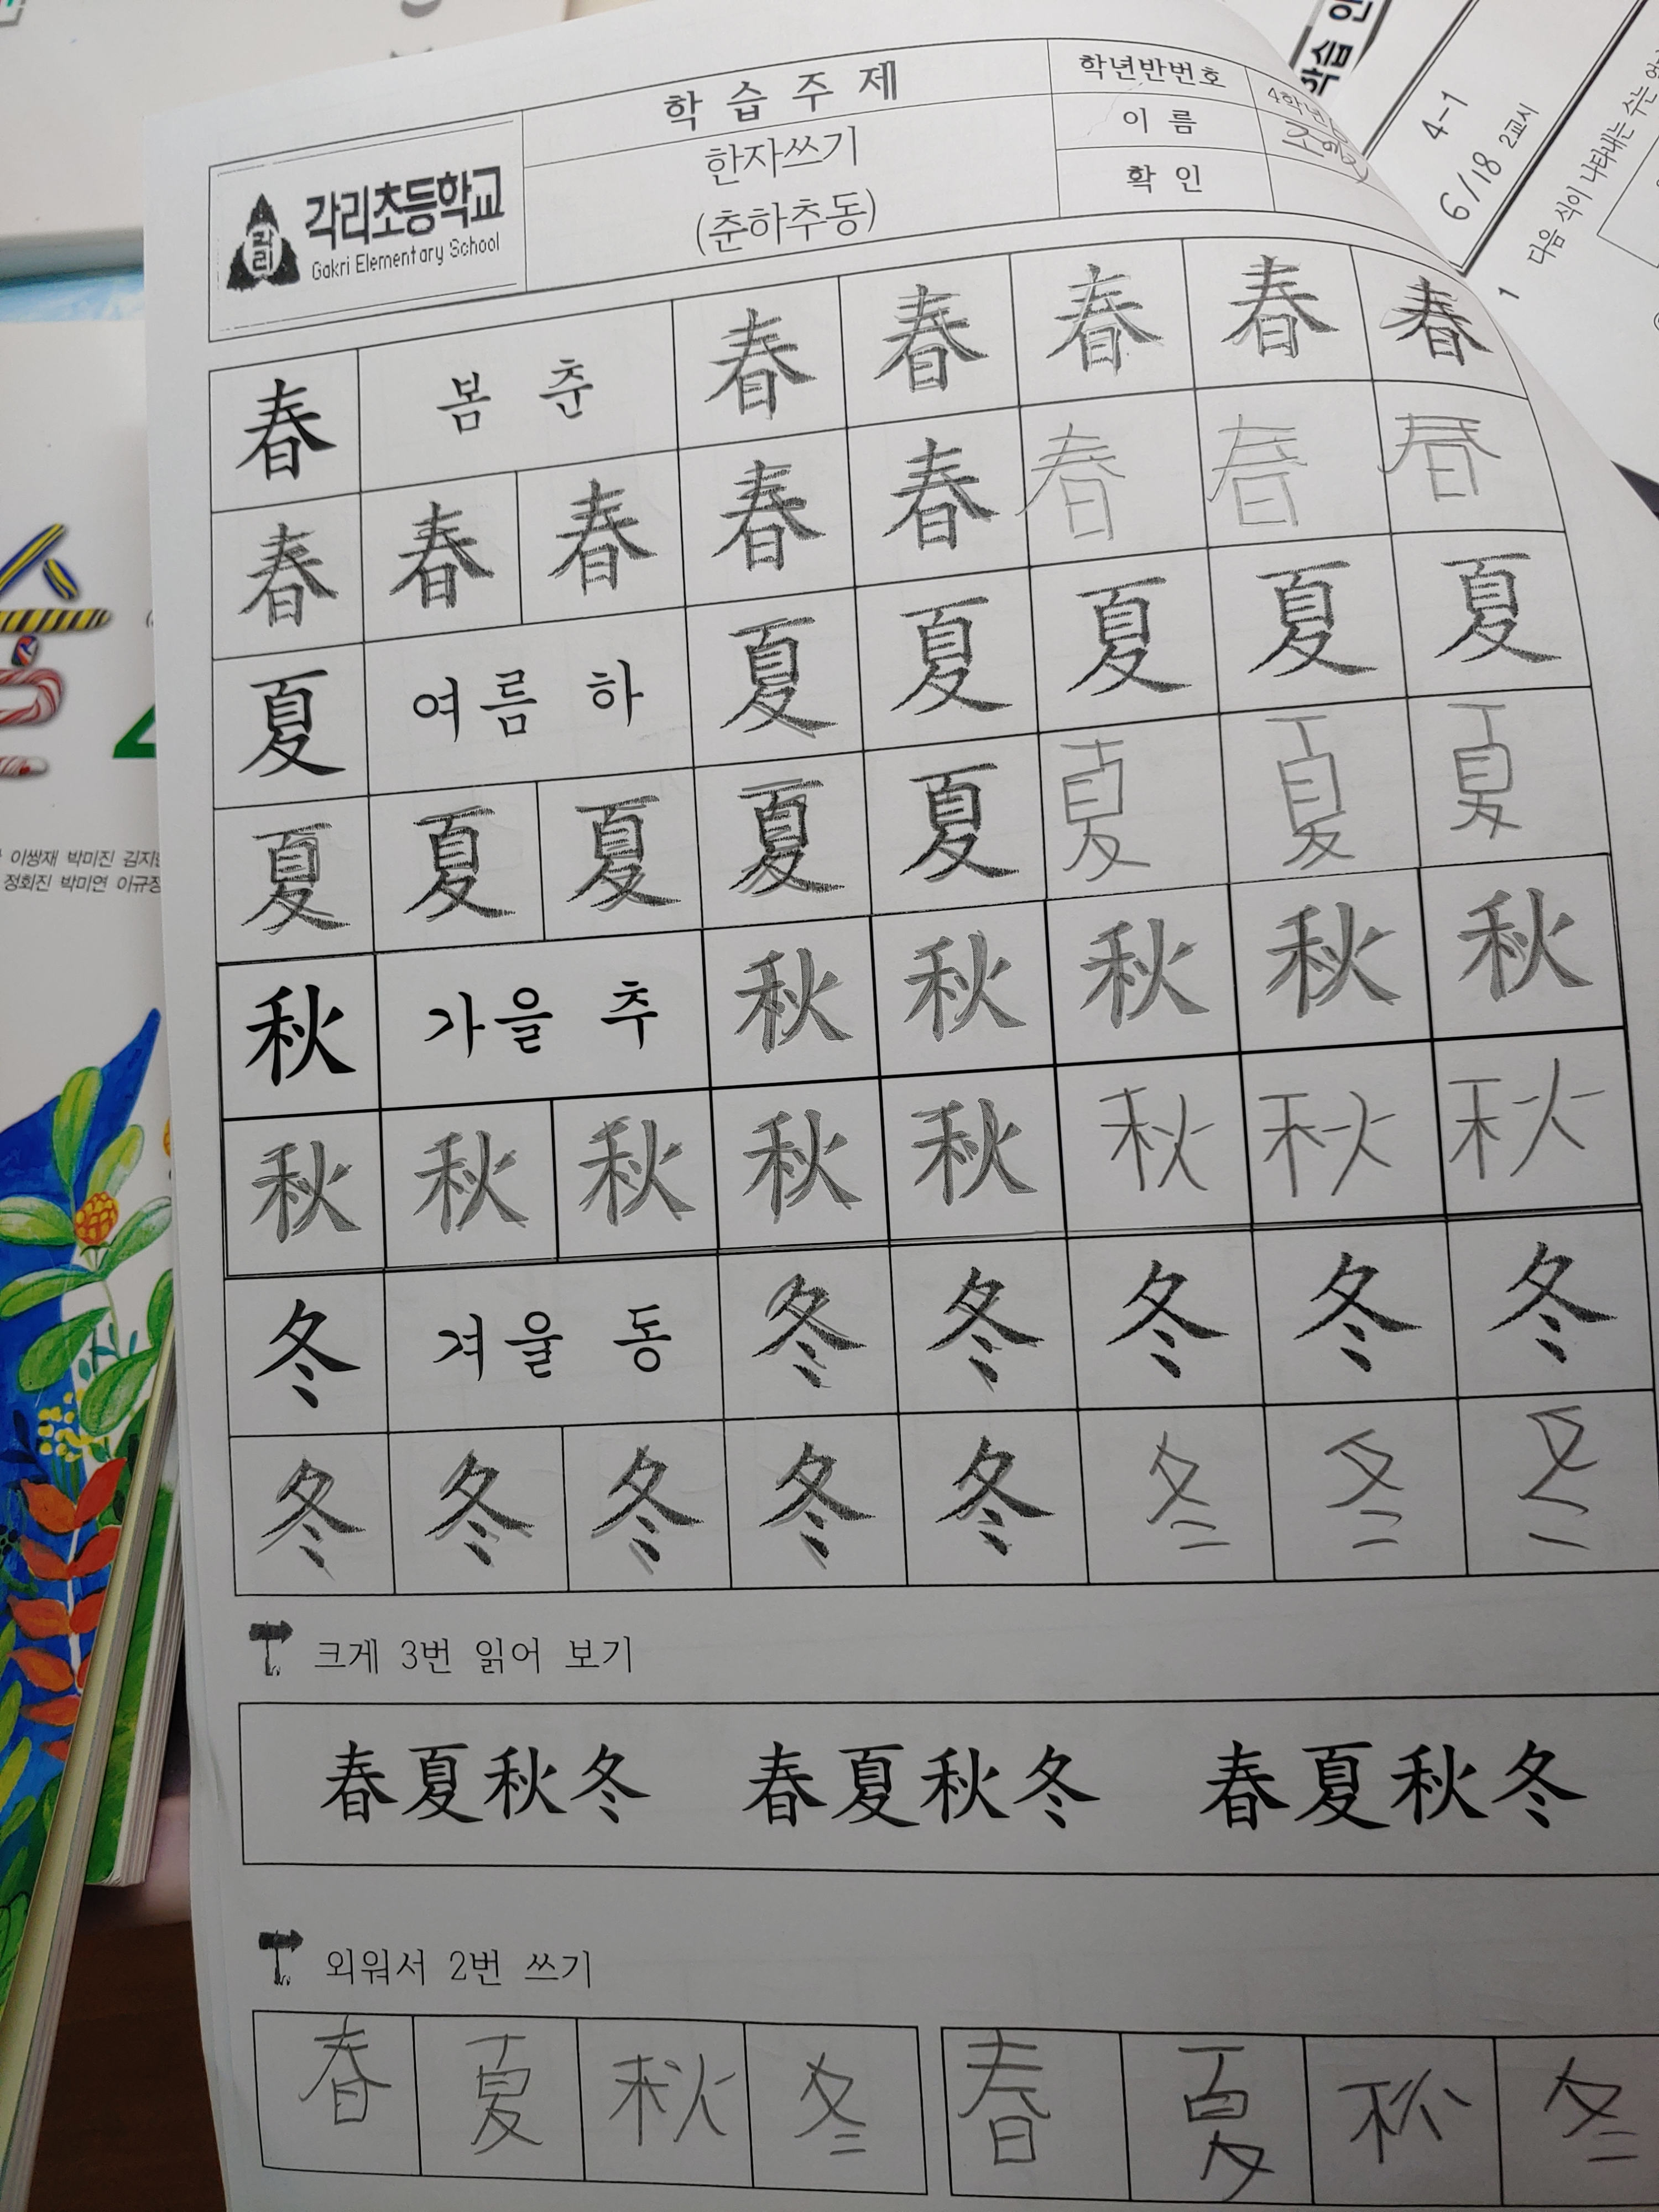 학습주제
한자쓰기
(춘하추동)
학년반번호
이름
확인
4학년
각리
각리초등학교
Gakri Elementary School
春 봄 춘 春 春 春 春 春
春 春 春 春 春 春 春 春
夏 여름 하 夏 夏 夏 夏 夏
夏 夏 夏 夏 夏 夏 夏 夏
秋 가을 추 秋 秋 秋 秋 秋
秋 秋 秋 秋 秋 秋 秋 秋
冬 겨울 동 冬 冬 冬 冬 冬
冬 冬 冬 冬 冬 冬 冬 冬
크게 3번 읽어 보기
春夏秋冬 春夏秋冬 春夏秋冬
외워서 2번 쓰기
春 夏 秋 冬 春 夏 秋 冬
학습
4-1
6/18 2교시
1 다음 식이 나타내는 수는
이쌍재 박미진
정회진 박미연 이규장